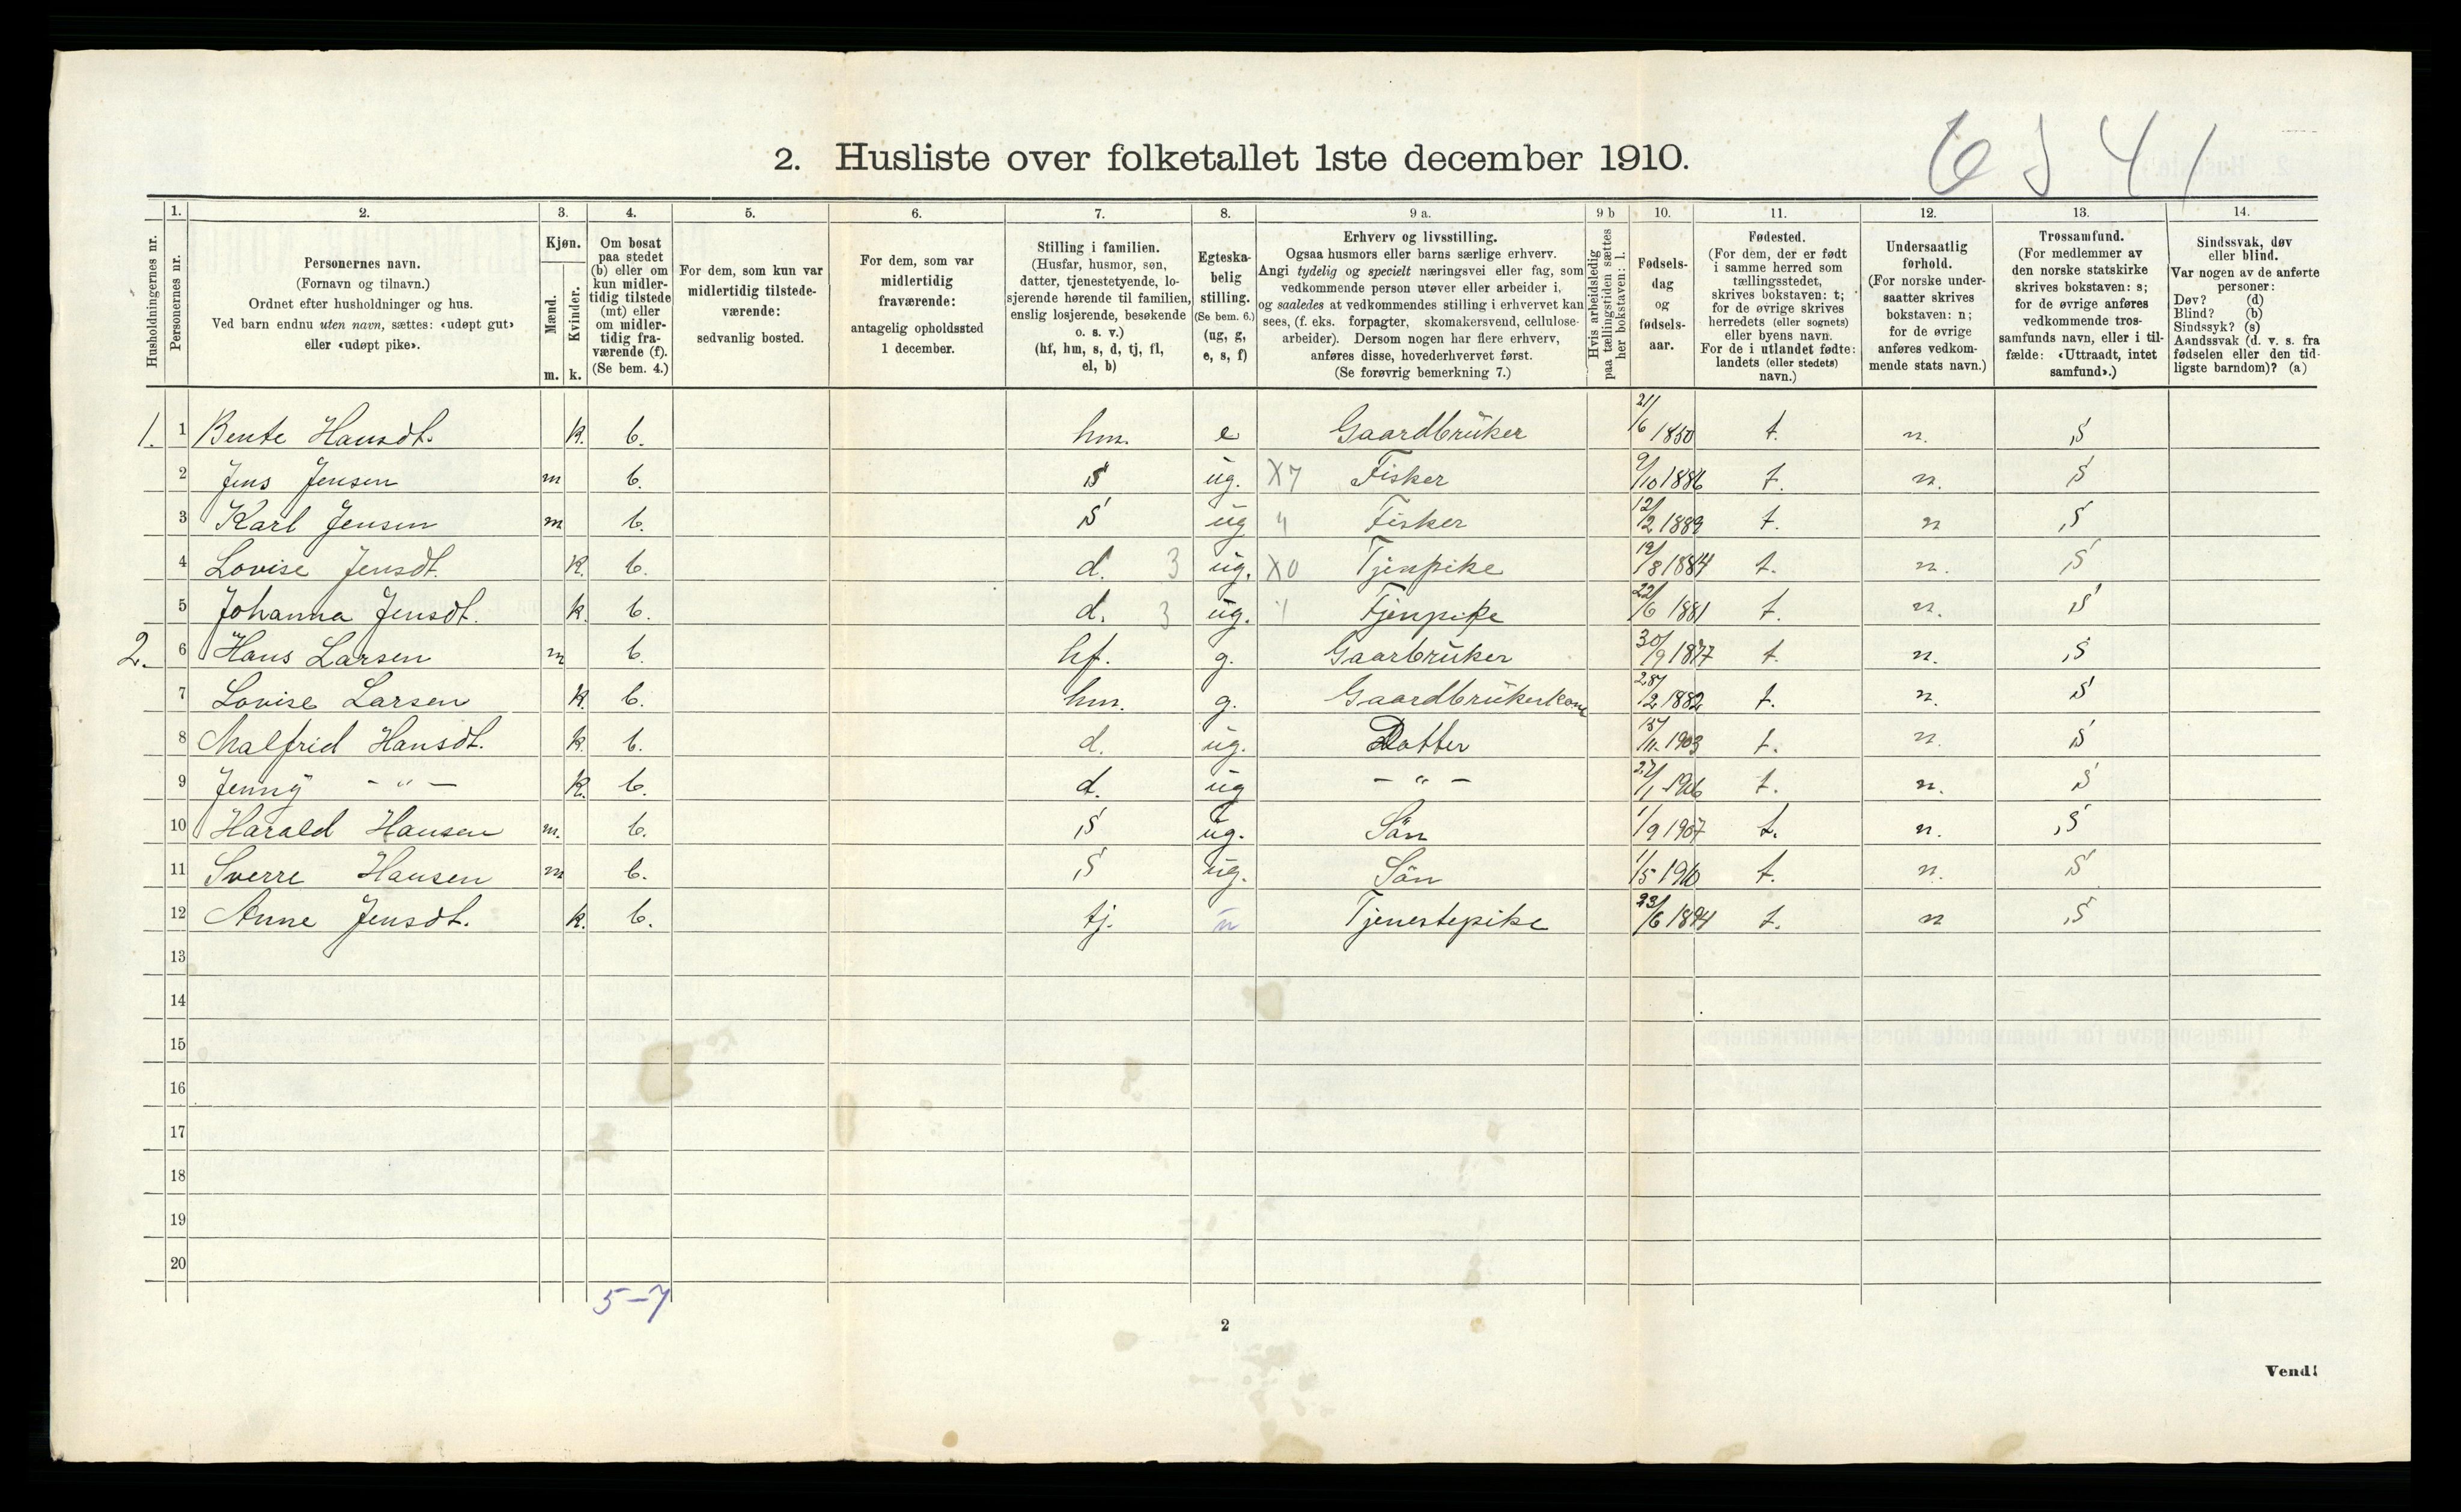 6 J 4 1
2. Husliste over folketallet 1ste december 1910.
Husholdningernes nr.
1. Personernes nr.
2. Personernes navn.
(Fornavn og tilnavn.)
Ordnet efter husholdninger og hus.
Ved barn endnu uten navn, sættes: «udøpt gut»
eller «udøpt pike».
3. Kjøn.
Mænd. m.
Kvinder. k.
4. Om bosat
paa stedet
(b) eller om
kun midler-
tidig tilstede
(mt) eller
om midler-
tidig fra-
værende (f).
(Se bem. 4.)
5. For dem, som kun var
midlertidig tilstede-
værende:
sedvanlig bosted.
6. For dem, som var
midlertidig
fraværende:
antagelig opholdssted
1 december.
7. Stilling i familien.
(Husfar, husmor, søn,
datter, tjenestetyende, lo-
sjerende hørende til familien,
enslig losjerende, besøkende
o. s. v.)
(hf, hm, s, d, tj, fl,
el, b)
8. Egteska-
belig
stilling.
(Se bem. 6.)
(ug, g,
e, s, f)
9 a. Erhverv og livsstilling.
Ogsaa husmors eller barns særlige erhverv.
Angi tydelig og specielt næringsvei eller fag, som
vedkommende person utøver eller arbeider i,
og saaledes at vedkommendes stilling i erhvervet kan
sees, (f. eks. forpagter, skomakersvend, cellulose-
arbeider). Dersom nogen har flere erhverv,
anføres disse, hovederhvervet først.
(Se forøvrig bemerkning 7.)
9 b Hvis arbeidsledig
paa tællingstiden sættes
her bokstaven: l.
10. Fødsels-
dag
og
fødsels-
aar.
11. Fødested.
(For dem, der er født
i samme herred som
tællingsstedet,
skrives bokstaven: t;
for de øvrige skrives
herredets (eller sognets)
eller byens navn.
For de i utlandet fødte:
landets (eller stedets)
navn.)
12. Undersaatlig
forhold.
(For norske under-
saatter skrives
bokstaven: n;
for de øvrige
anføres vedkom-
mende stats navn.)
13. Trossamfund.
(For medlemmer av
den norske statskirke
skrives bokstaven: s;
for de øvrige anføres
vedkommende tros-
samfunds navn, eller i til-
fælde: «Uttraadt, intet
samfund».)
14. Sindssvak, døv
eller blind.
Var nogen av de anførte
personer:
Døv? (d)
Blind? (b)
Sindssyk? (s)
Aandssvak (d. v. s. fra
fødselen eller den tid-
ligste barndom)? (a)
1. 1 Bente Hansdt. k. b. hm. e Gaardbrüker 21/6 1850 t. n. s
2 Jens Jensen m b. s ug. X7 Fisker 9/10 1886 t. n. s
3 Karl Jensen m b. s ug " Fisker 12/2 1889 t. n s
4 Lovise Jensdt. k. b. d. 3 ug. X0 Tjenpike 19/8 1884 t. n. s
5 Johanna Jensdt. k. b. d. 3 ug. " Tjenpike 22/6 1881 t. n. s
2. 6 Hans Larsen m b. hf. g. Gaarbrüker 30/9 1877 t. n. s
7 Lovise Larsen k. b. hm. g. Gaardbrükerkone 28/2 1882 t. n. s
8 Malfrid Hansdt. k. b. d. ug. Datter 15/11 1903 t. n. s
9 Jenny - " - k. b. d. ug - " - 27/1 1906 t. n. s
10 Harald Hansen m. b. s ug. Sön 1/9 1907 t. n. s
11 Sverre Hansen m b. s ug. Sön 1/5 1910 t. n. s
12 Anne Jensdt. k. b. tj. Tjenestepike 23/6 1894 t. n s
13
14
15
16
17
18
19
20
5-7
2
Vend!